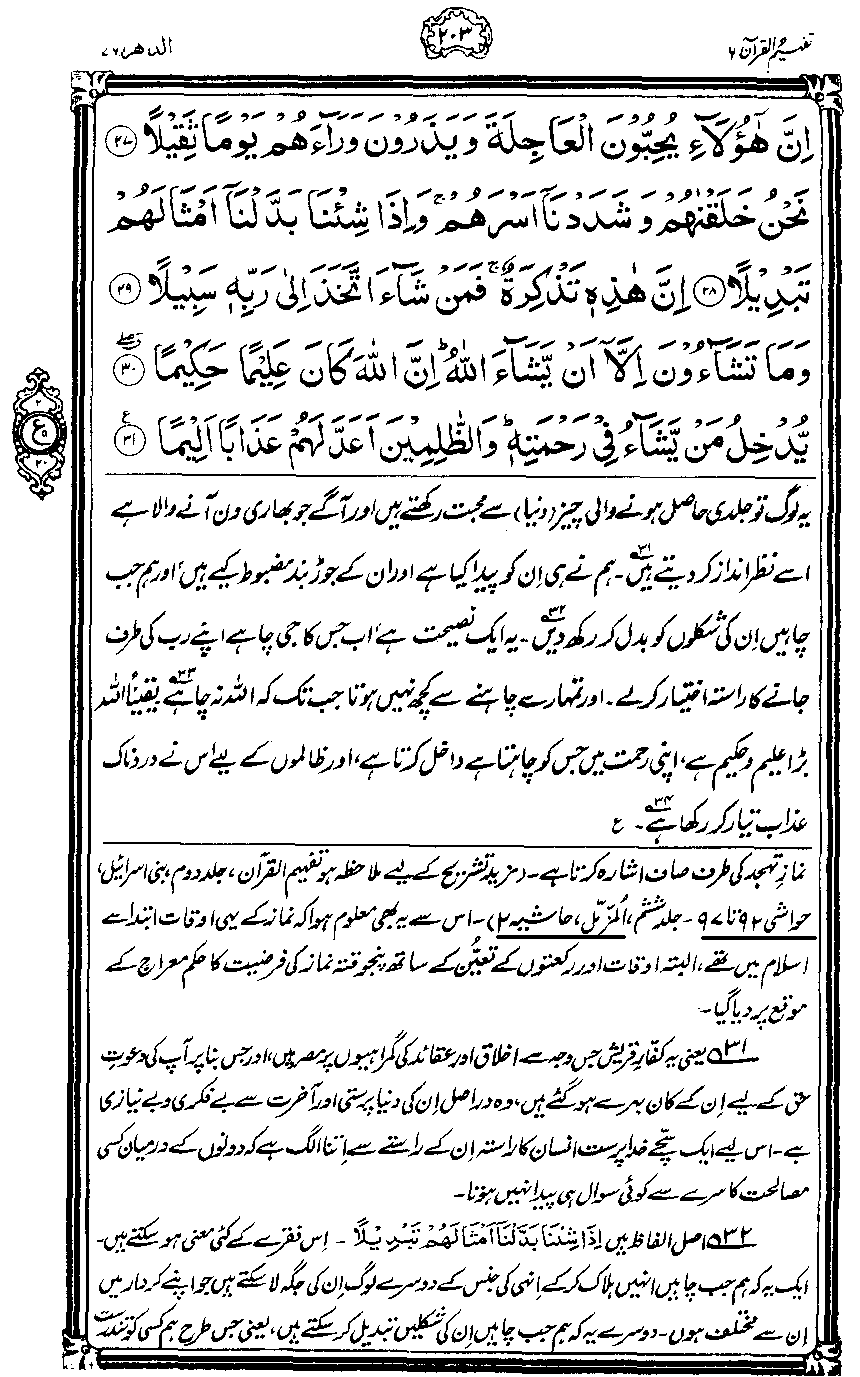 تفہیم القرآن ۶
۲۰۳
الدھر ۷۶
اِنَّ هٰۤؤُلَآءِ يُحِبُّوْنَ الْعَاجِلَةَ وَيَذَرُوْنَ وَرَآءَهُمْ يَوْمًا ثَقِيْلًا ﴿۲۷﴾
نَحْنُ خَلَقْنٰهُمْ وَشَدَدْنَاۤ اَسْرَهُمْ ۚ وَاِذَا شِئْنَا بَدَّلْنَاۤ اَمْثَالَهُمْ
تَبْدِيْلًا ﴿۲۸﴾ اِنَّ هٰذِهٖ تَذْكِرَةٌ ۚ فَمَنْ شَآءَ اتَّخَذَ اِلٰى رَبِّهٖ سَبِيْلًا ﴿۲۹﴾
وَمَا تَشَآءُوْنَ اِلَّاۤ اَنْ يَّشَآءَ اللّٰهُ ؕ اِنَّ اللّٰهَ كَانَ عَلِيْمًا حَكِيْمًا ﴿۳۰﴾
يُّدْخِلُ مَنْ يَّشَآءُ فِيْ رَحْمَتِهٖ ؕ وَالظّٰلِمِيْنَ اَعَدَّ لَهُمْ عَذَابًا اَلِيْمًا ﴿۳۱﴾
ع
یہ لوگ تو جلدی حاصل ہونے والی چیز (دنیا) سے محبت رکھتے ہیں اور آگے جو بھاری دن آنے والا ہے
اسے نظر انداز کر دیتے ہیں۳۱۔ ہم نے ہی اِن کو پیدا کیا ہے اور ان کے جوڑ بند مضبوط کیے ہیں، اور ہم جب
چاہیں اِن کی شکلوں کو بدل کر رکھ دیں۳۲۔ یہ ایک نصیحت ہے، اب جس کا جی چاہے اپنے رب کی طرف
جانے کا راستہ اختیار کر لے۔ اور تمہارے چاہنے سے کچھ نہیں ہوتا جب تک کہ اللہ نہ چاہے۳۳۔ یقیناً اللہ
بڑا علیم و حکیم ہے، اپنی رحمت میں جس کو چاہتا ہے داخل کرتا ہے، اور ظالموں کے لیے اس نے دردناک
عذاب تیار کر رکھا ہے۳۴۔ ع
نمازِ تہجد کی طرف صاف اشارہ کرتا ہے۔ (مزید تشریح کے لیے ملاحظہ ہو تفہیم القرآن، جلد دوم، بنی اسرائیل،
حواشی ۹۲ تا ۹۷۔ جلد ششم، المُزمّل، حاشیہ ۲)۔ اس سے یہ بھی معلوم ہوا کہ نماز کے یہی اوقات ابتدا سے
اسلام میں تھے، البتہ اوقات اور رکعتوں کے تعیُّن کے ساتھ پنجوقتہ نماز کی فرضیت کا حکم معراج کے
موقع پر دیا گیا۔
۳۱؎ یعنی یہ کفارِ قریش جس وجہ سے اخلاق اور عقائد کی گمراہیوں پر مصر ہیں، اور جس بنا پر آپ کی دعوتِ
حق کے لیے اِن کے کان بہرے ہو گئے ہیں، وہ دراصل اِن کی دنیا پرستی اور آخرت سے بے فکری و بے نیازی
ہے۔ اس لیے ایک سچے خدا پرست انسان کا راستہ اِن کے راستے سے اِتنا الگ ہے کہ دونوں کے درمیان کسی
مصالحت کا سرے سے کوئی سوال ہی پیدا نہیں ہوتا۔
۳۲؎ اصل الفاظ ہیں اِذَا شِئْنَا بَدَّلْنَاۤ اَمْثَالَهُمْ تَبْدِيْلًا۔ اِس فقرے کے کئی معنی ہو سکتے ہیں۔
ایک یہ کہ ہم جب چاہیں انہیں ہلاک کر کے اِنہی کی جنس کے دوسرے لوگ اِن کی جگہ لا سکتے ہیں جو اپنے کردار میں
اِن سے مختلف ہوں۔ دوسرے یہ کہ ہم جب چاہیں اِن کی شکلیں تبدیل کر سکتے ہیں، یعنی جس طرح ہم کسی کو تندرست